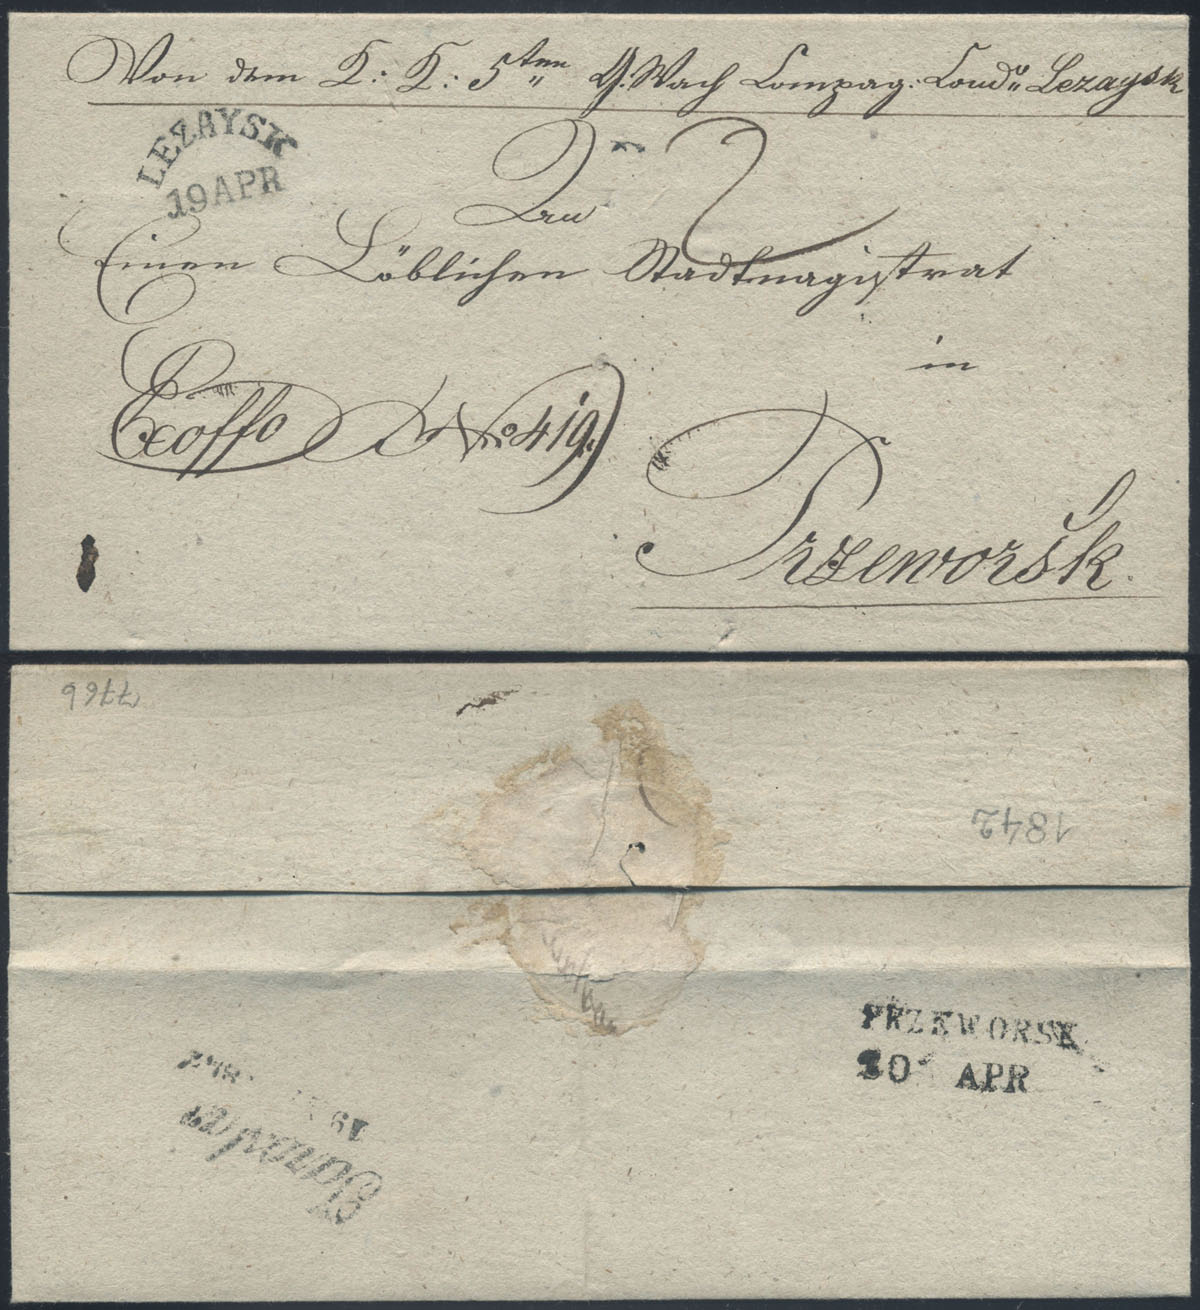 Von dem K: K: 5ten G: Wach Compag: Coms: Lezaysk
LEZAYSK
19 APR
An
Einen Löblichen Stadtmagistrat
in
Exoffo No 419.
Przeworsk.
7766
1842
PRZEWORSK
20 APR
Jaroslau
19